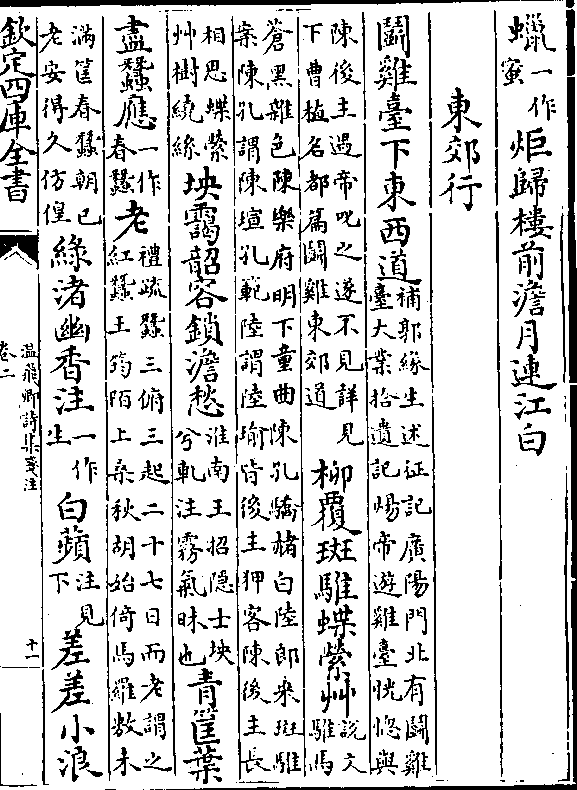 蠟一作蜜炬歸樓前澹月連江白
東郊行
鬭雞臺下東西道補郭緣生述征記廣陽門北有鬭雞
臺大業拾遺記煬帝遊雞臺恍惚與
陳後主遇帝叱之遂不見詳見
下曹植名都篇鬭雞東郊道柳覆斑騅蝶縈艸說文
騅馬
蒼黑雜色陳樂府明下童曲陳孔驕赭白陸郎乘斑騅
案陳孔謂陳瑄孔範陸謂陸瑜皆後主狎客陳後主長
相思蝶縈
艸樹繞絲坱靄韶容鎖澹愁淮南王招隐士坱
兮軋注霧氣昧也青筐葉
盡蠶應一作
春蠶老禮疏蠶三俯三起二十七日而老謂之
紅蠶王筠陌上桑秋胡始倚馬羅敷未
滿筐春蠶朝已
老安得久彷徨綠渚幽香注一作
生白蘋注見
下差差小浪
欽定四庫全書
温飛卿詩集箋注
卷二
十一